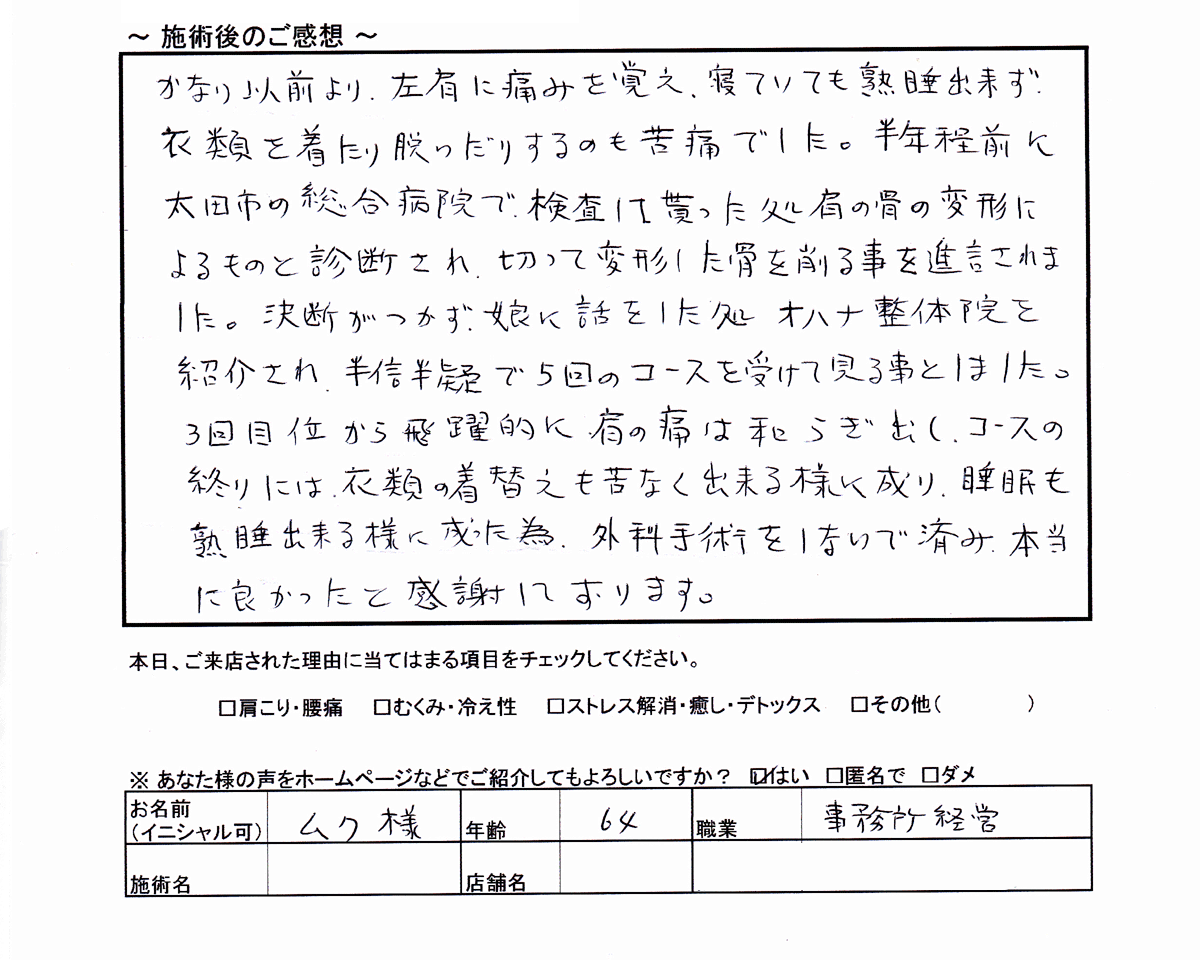 ～ 施術後のご感想 ～
かなり以前より、左肩に痛みを覚え、寝ていても熟睡出来ず、
衣類を着たり脱いだりするのも苦痛でした。半年程前に
太田市の総合病院で、検査して貰った処肩の骨の変形に
よるものと診断され、切って変形した骨を削る事を進言されま
した。決断がつかず、娘に話をした処 オハナ整体院を
紹介され、半信半疑で5回のコースを受けて見る事としました。
3回目位から飛躍的に肩の痛は和らぎ出し、コースの
終りには、衣類の着替えも苦なく出来る様に成り、睡眠も
熟睡出来る様に成った為、外科手術をしないで済み、本当
に良かったと感謝しております。
本日、ご来店された理由に当てはまる項目をチェックしてください。
□肩こり・腰痛 □むくみ・冷え性 □ストレス解消・癒し・デトックス □その他（ ）
※ あなた様の声をホームページなどでご紹介してもよろしいですか？ ☑はい □匿名で □ダメ
お名前（イニシャル可） ムク様 年齢 64 職業 事務所経営
施術名 店舗名